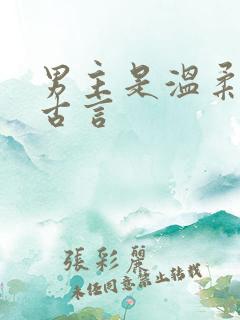 男主是溫柔
古言
張彩麗
未经同意禁止转载